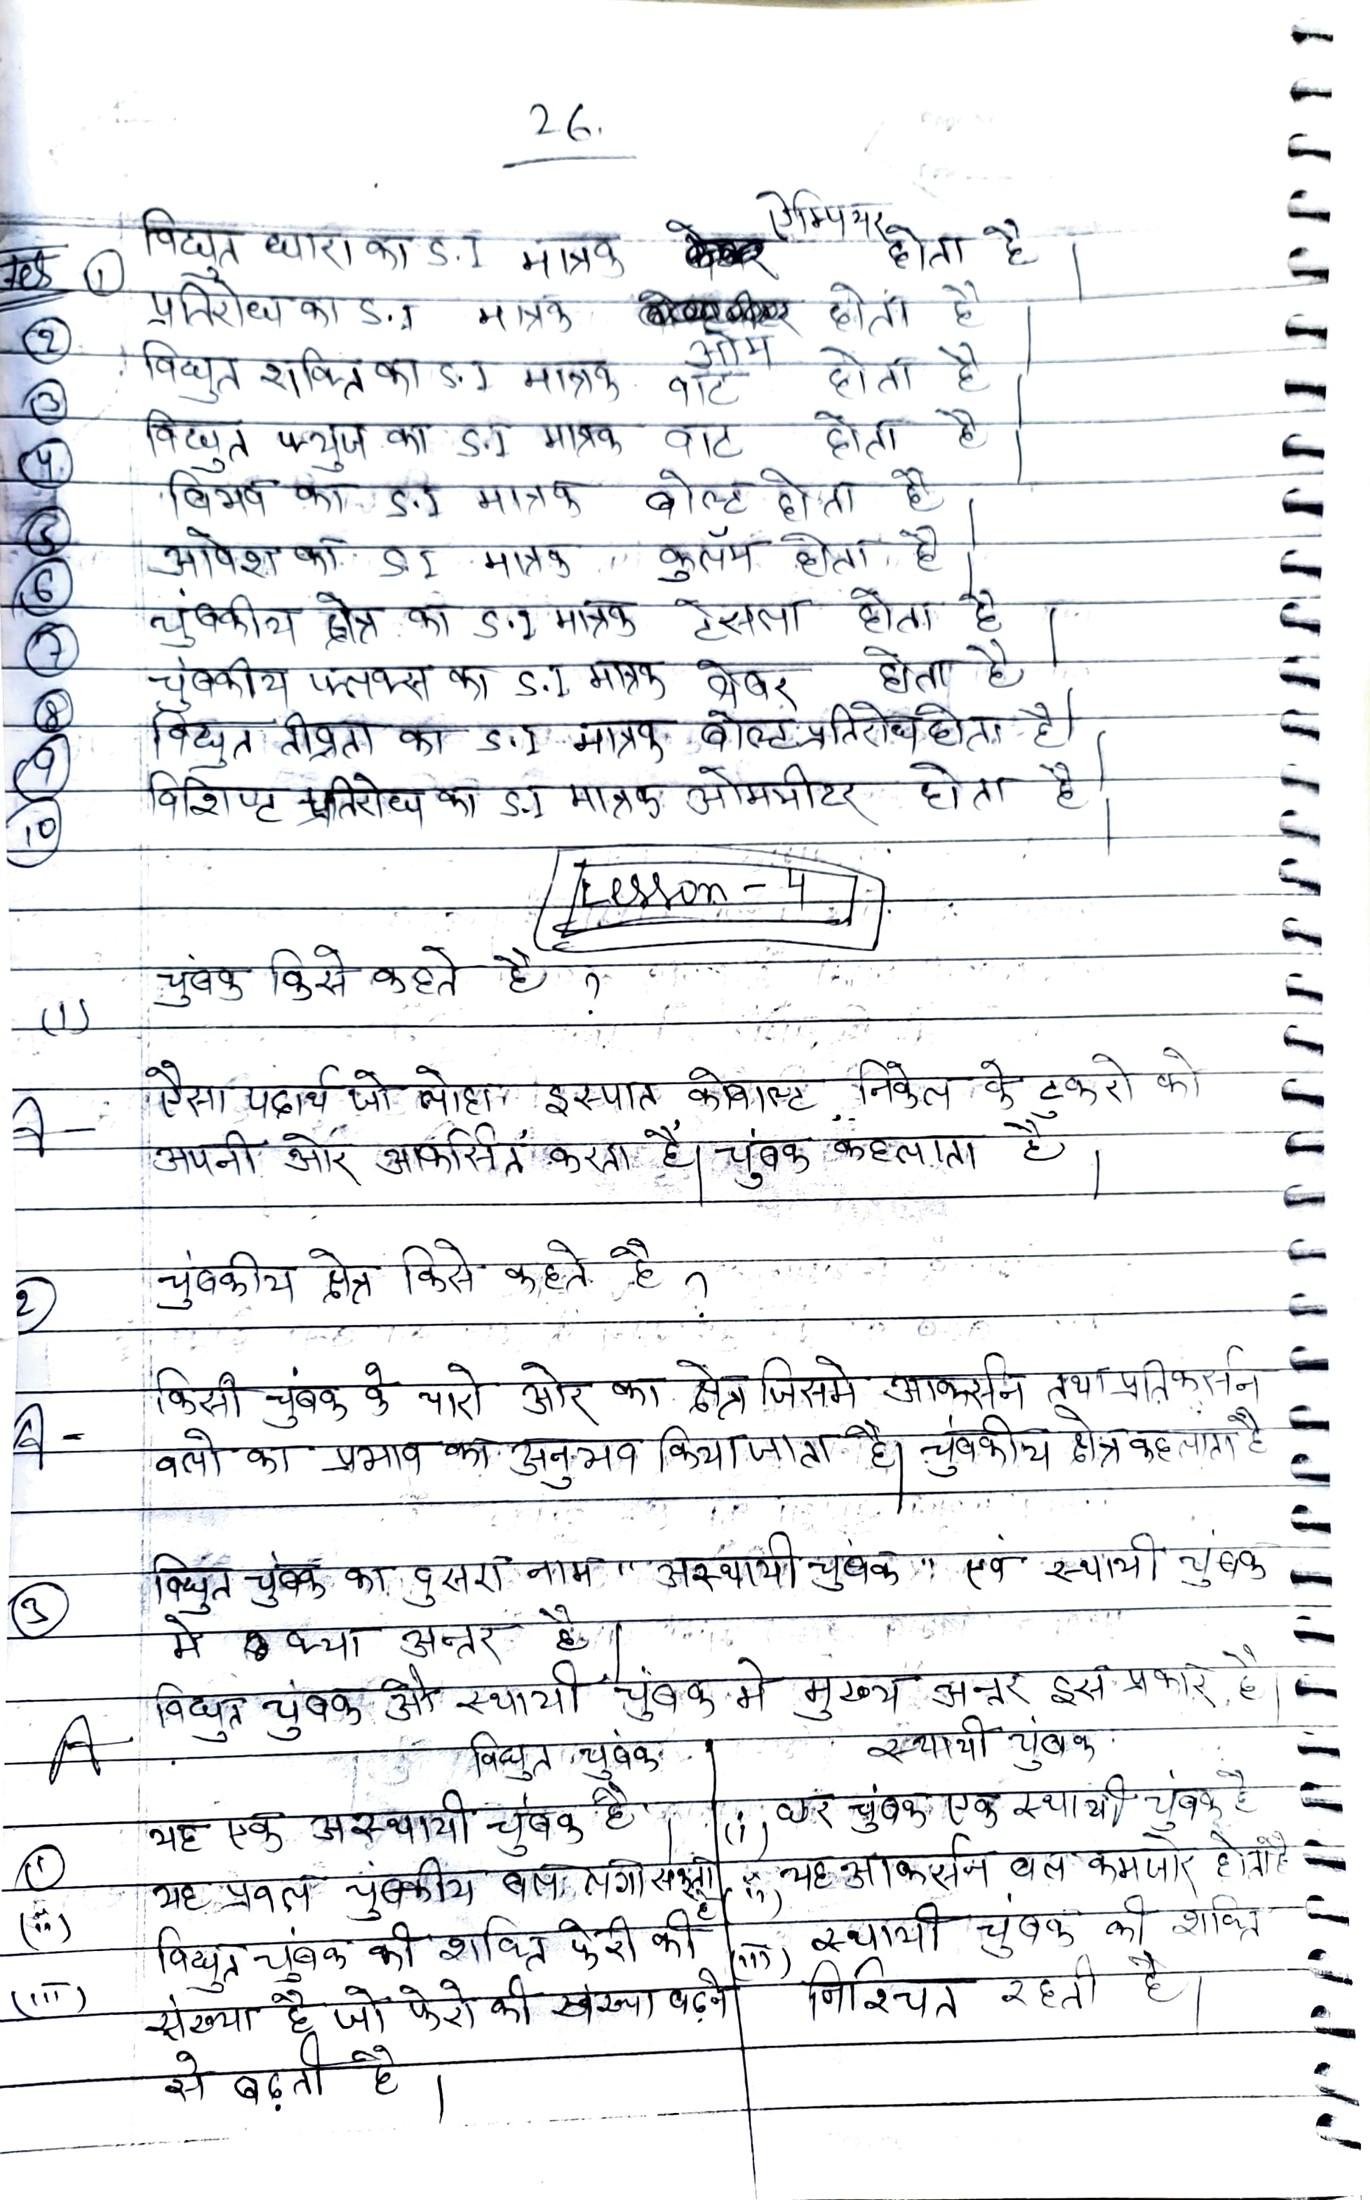 26.
① विद्युत धारा का S.I मात्रक ऐम्पियर होता है |
② प्रतिरोध का S.I मात्रक ओम होता है |
③ विद्युत शक्ति का S.I मात्रक वाट होता है |
④ विद्युत फ्युज का S.I मात्रक वाट होता है |
⑤ विभव का S.I मात्रक वोल्ट होता है |
⑥ आवेश का S.I मात्रक कुलॅाम होता है |
⑦ चुंबकीय क्षेत्र का S.I मात्रक टेसला होता है |
⑧ चुंबकीय फ्लक्स का S.I मात्रक वेबर होता है |
⑨ विद्युत तीव्रता का S.I मात्रक वोल्ट प्रतिरोध होता है |
⑩ विशिष्ट प्रतिरोध का S.I मात्रक ओममीटर होता है |
Lesson - 4
(1) चुंबक किसे कहते है ?
A- ऐसा पदार्थ जो लोहा इस्पात कोबाल्ट निकेल के टुकरो को
अपनी ओर आकर्सित करता है | चुंबक कहलाता है |
② चुंबकीय क्षेत्र किसे कहते है ?
A- किसी चुंबक के चारो ओर का क्षेत्र जिसमे आकर्सन तथा प्रतिकर्सन
बलो का प्रभाव का अनुभव किया जाता है | चुंबकीय क्षेत्र कहलाता है
③ विधुत चुंबक का दुसरा नाम "अस्थायी चुंबक" एवं स्थायी चुंबक
मे क्या अन्तर है |
A विद्युत चुंबक और स्थायी चुंबक मे मुख्य अन्तर इस प्रकार है |
विद्युत चुंबक स्थायी चुंबक
(i) यह एक अस्थायी चुंबक है | (i) छर चुंबक एक स्थायी चुंबक है
(ii) यह प्रवल चुंबकीय बल लगा सकता है | (ii) यह आकर्सन बल कमजोर होता है
(iii) विद्युत चुंबक की शक्ति फेरो की (iii) स्थायी चुंबक की शक्ति
संख्या है जो फेरो की संख्या बढ़ने निश्चित रहती है |
से बढ़ती है |